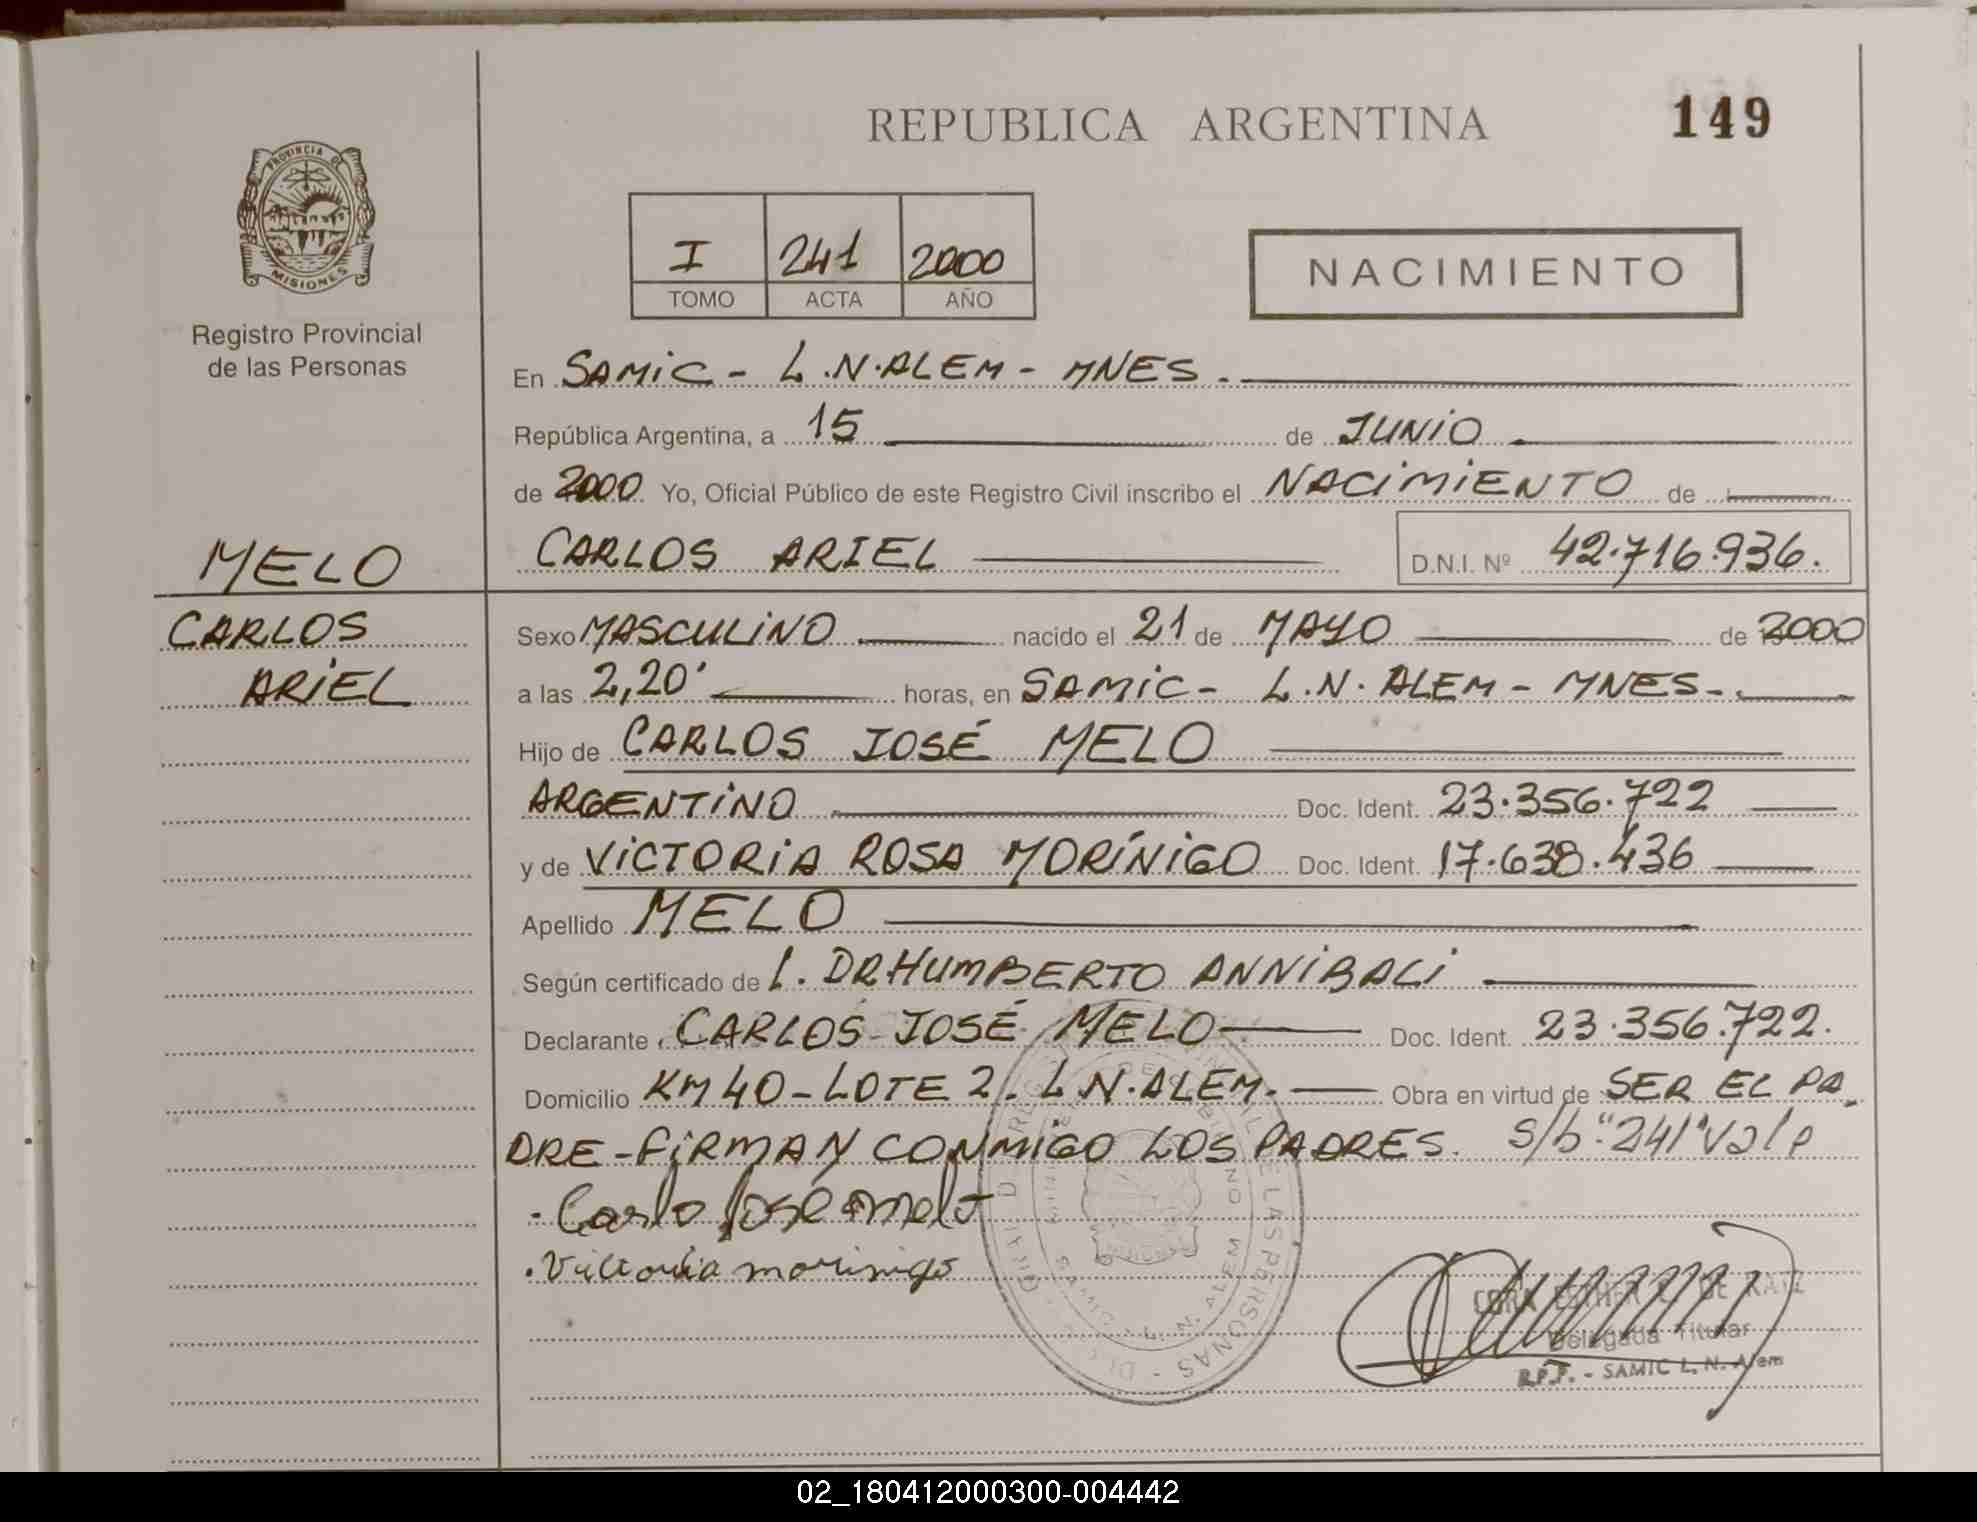 REPUBLICA ARGENTINA
149
PROVINCIA DE
MISIONES
Registro Provincial
de las Personas
I 241 2000
TOMO ACTA AÑO
NACIMIENTO
En SAMIC - L.N.ALEM - MNES.
República Argentina, a 15 de JUNIO
de 2000 Yo, Oficial Público de este Registro Civil inscribo el NACIMIENTO de
MELO
CARLOS ARIEL D.N.I. Nº 42.716.936.
CARLOS
ARIEL
Sexo MASCULINO nacido el 21 de MAYO de 2000
a las 2,20' horas, en SAMIC - L.N. ALEM - MNES -.
Hijo de CARLOS JOSÉ MELO
ARGENTINO Doc. Ident. 23.356.722
y de VICTORIA ROSA MORÍNIGO Doc. Ident. 17.638.436
Apellido MELO
Según certificado de 1. DR.HUMBERTO ANNIBALI
Declarante CARLOS JOSÉ MELO Doc. Ident. 23.356.722.
Domicilio KM 40 - LOTE 2. L N.ALEM. Obra en virtud de SER EL PA
DRE - FIRMAN CONMIGO LOS PADRES. s/b "241" Vale
Carlo José melo
Victoria morinigo
DE RATZ
Delegada Titular
R.P.P. - SAMIC L. N. Alem
02_180412000300-004442